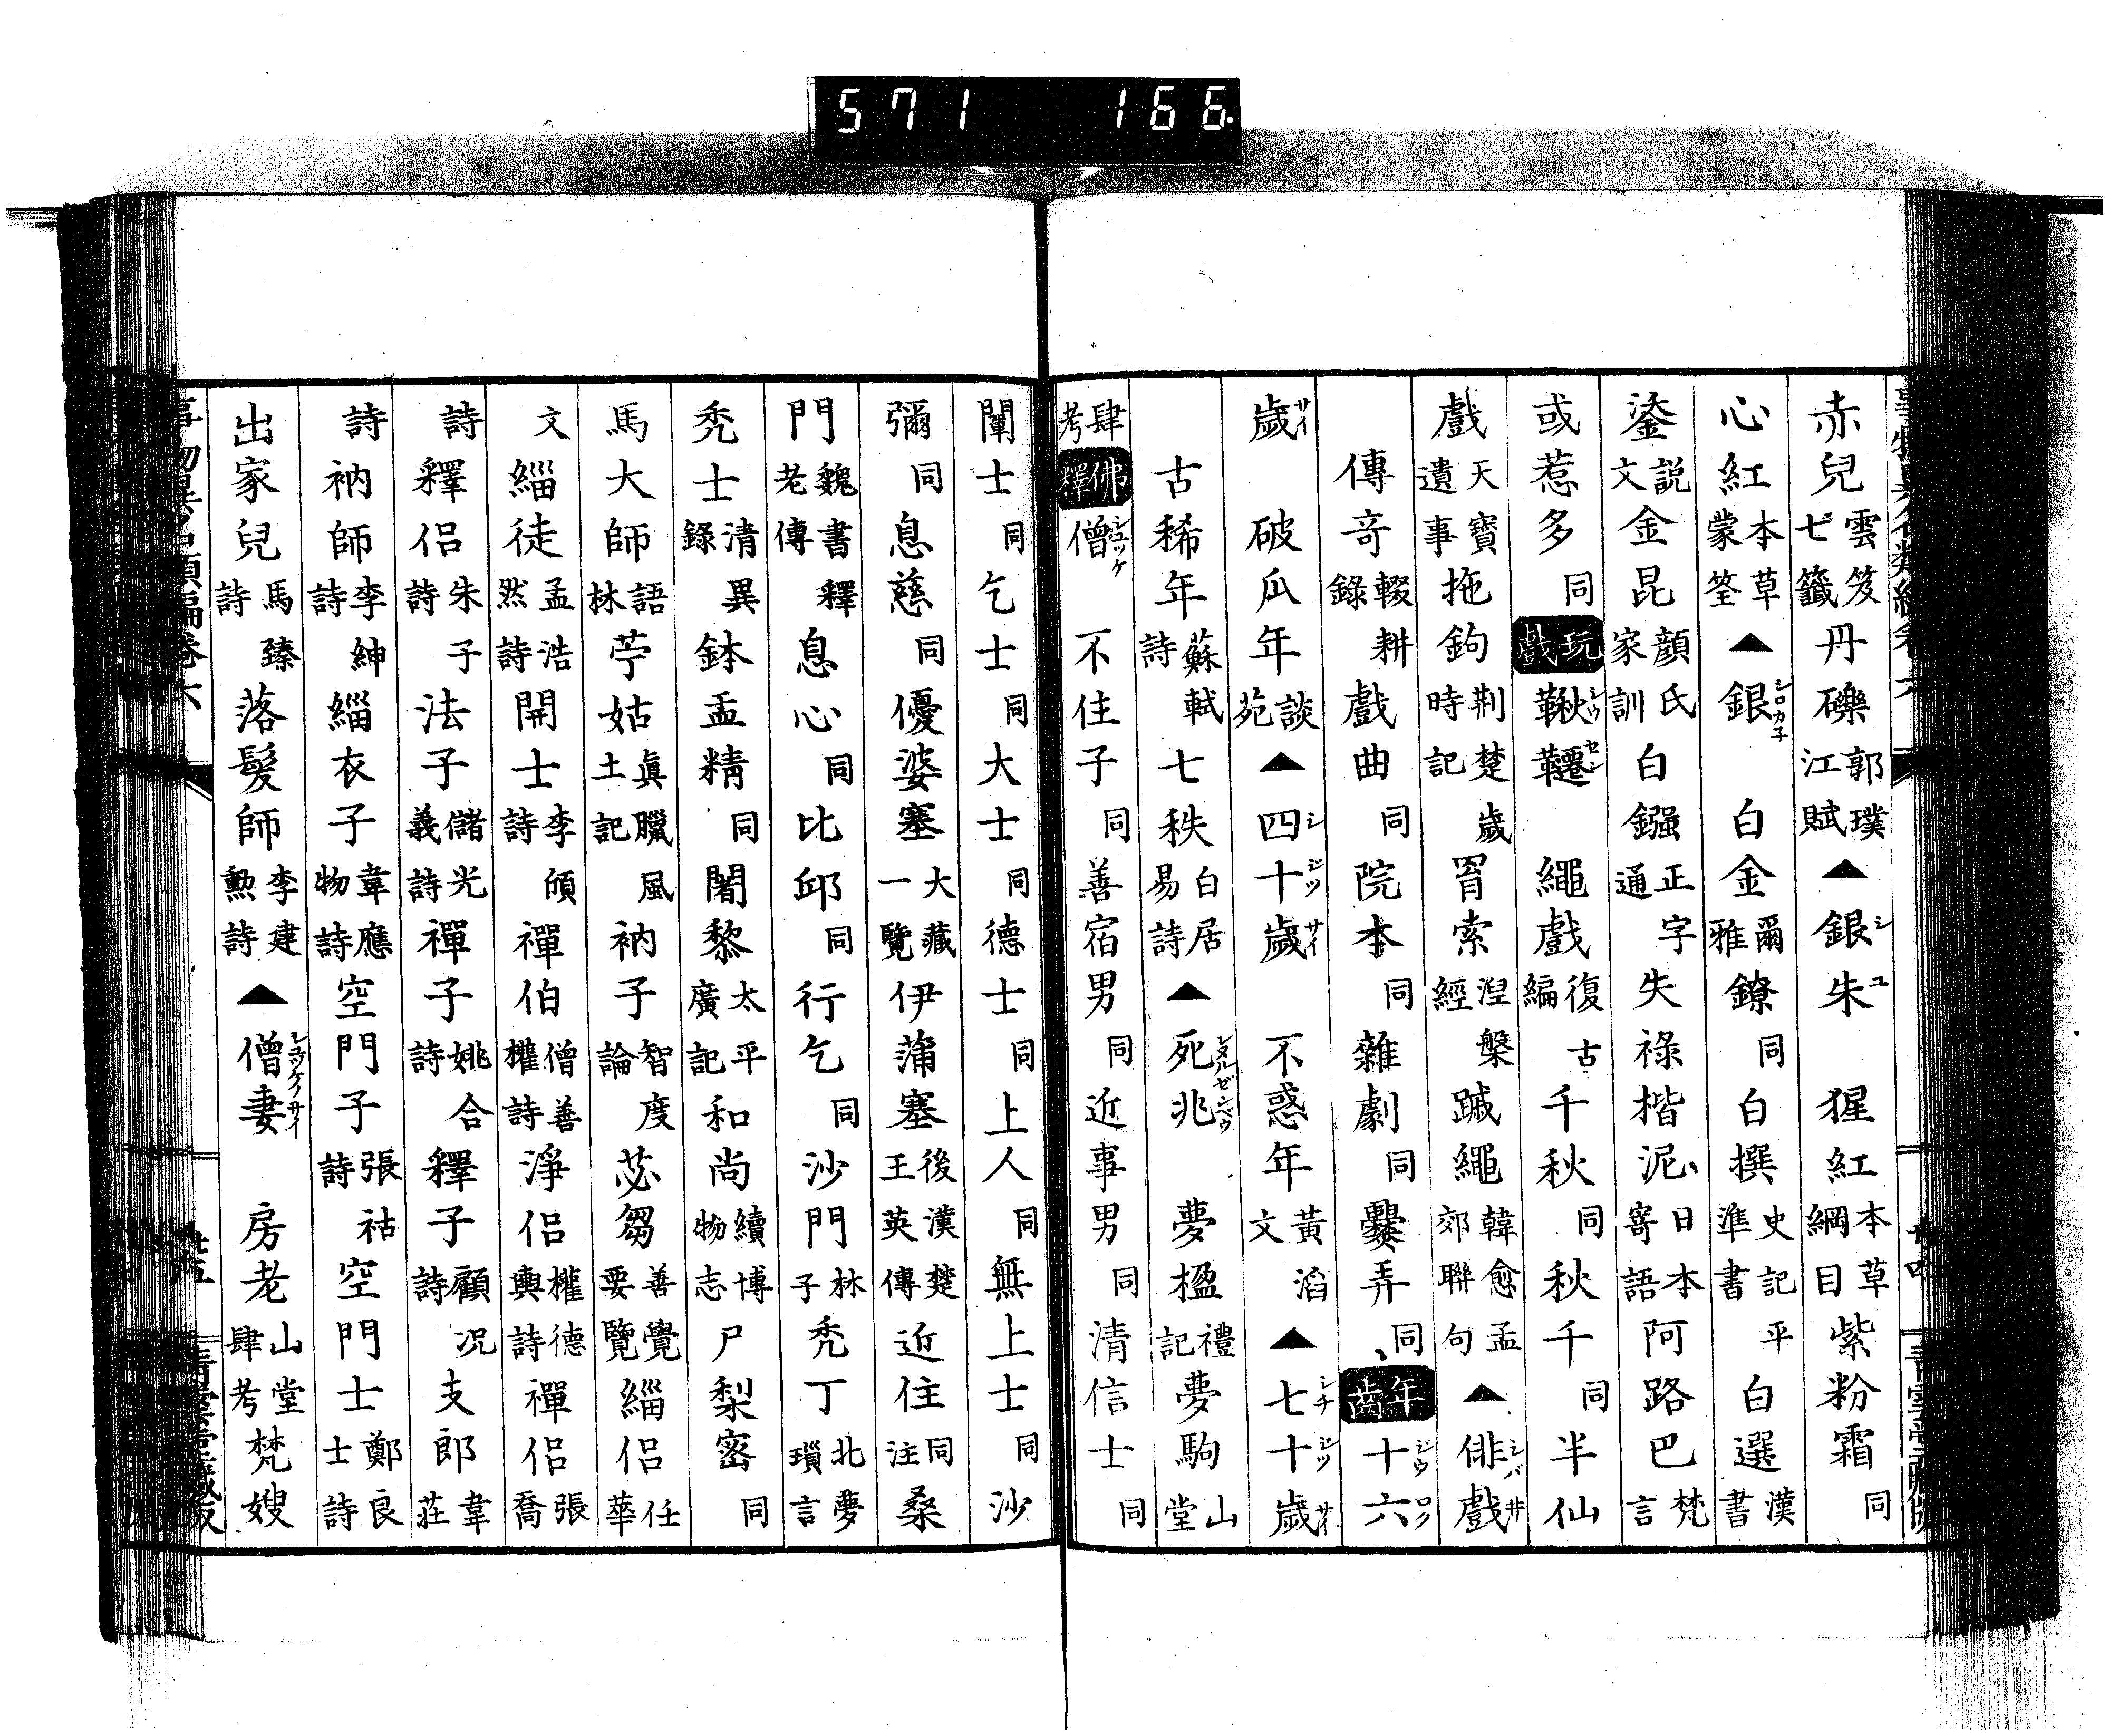 571 166.
赤兒雲笈七籤丹礫郭璞江賦▲銀朱シユ 猩紅本草綱目紫粉霜同
心紅本草蒙筌▲銀シロカ子 白金爾雅鐐同白撰史記平準書白選漢書
鋈説文金昆顏氏家訓白鏹正字通失祿楷泥日本寄語阿路巴梵言
或惹多同玩戲鞦シウ韆セン 繩戲復古編千秋同秋千同半仙
戲天寶遺事拖鉤荆楚歲時記罥索涅槃經蹴繩韓愈孟郊聯句▲俳戲シバ井
傳奇輟耕錄戲曲同院本同雜劇同爨弄同年齒十六ジウロク
歲サイ 破瓜年談苑▲四十歲シジツサイ 不惑年黃滔文▲七十歲シチジツサイ
古稀年蘇軾詩七秩白居易詩▲死兆シヌルゼンベウ 夢楹禮記夢駒山堂
肆考佛釋僧シユツケ 不住子同善宿男同近事男同清信士同
闡士同乞士同大士同德士同上人同無上士同沙
彌同息慈同優婆塞大藏一覽伊蒲塞後漢楚王英傳近住同注桑
門魏書釋老傳息心同比邱同行乞同沙門林子禿丁北夢瑣言
禿士清異錄鉢盂精同闍黎太平廣記和尚續博物志尸梨密同
馬大師語林苧姑眞臘風土記衲子智度論苾芻善覺要覽緇侶任華
文緇徒孟浩然詩開士李頎詩禪伯僧善權詩淨侶權德輿詩禪侶張喬
詩釋侶朱子詩法子儲光義詩禪子姚合詩釋子顧況詩支郎韋莊
詩衲師李紳詩緇衣子韋應物詩空門子張祜詩空門士鄭良士詩
出家兒馬臻詩落髮師李建勲詩▲僧妻シユツケノサイ 房老山堂肆考梵嫂
事物異名類編卷六